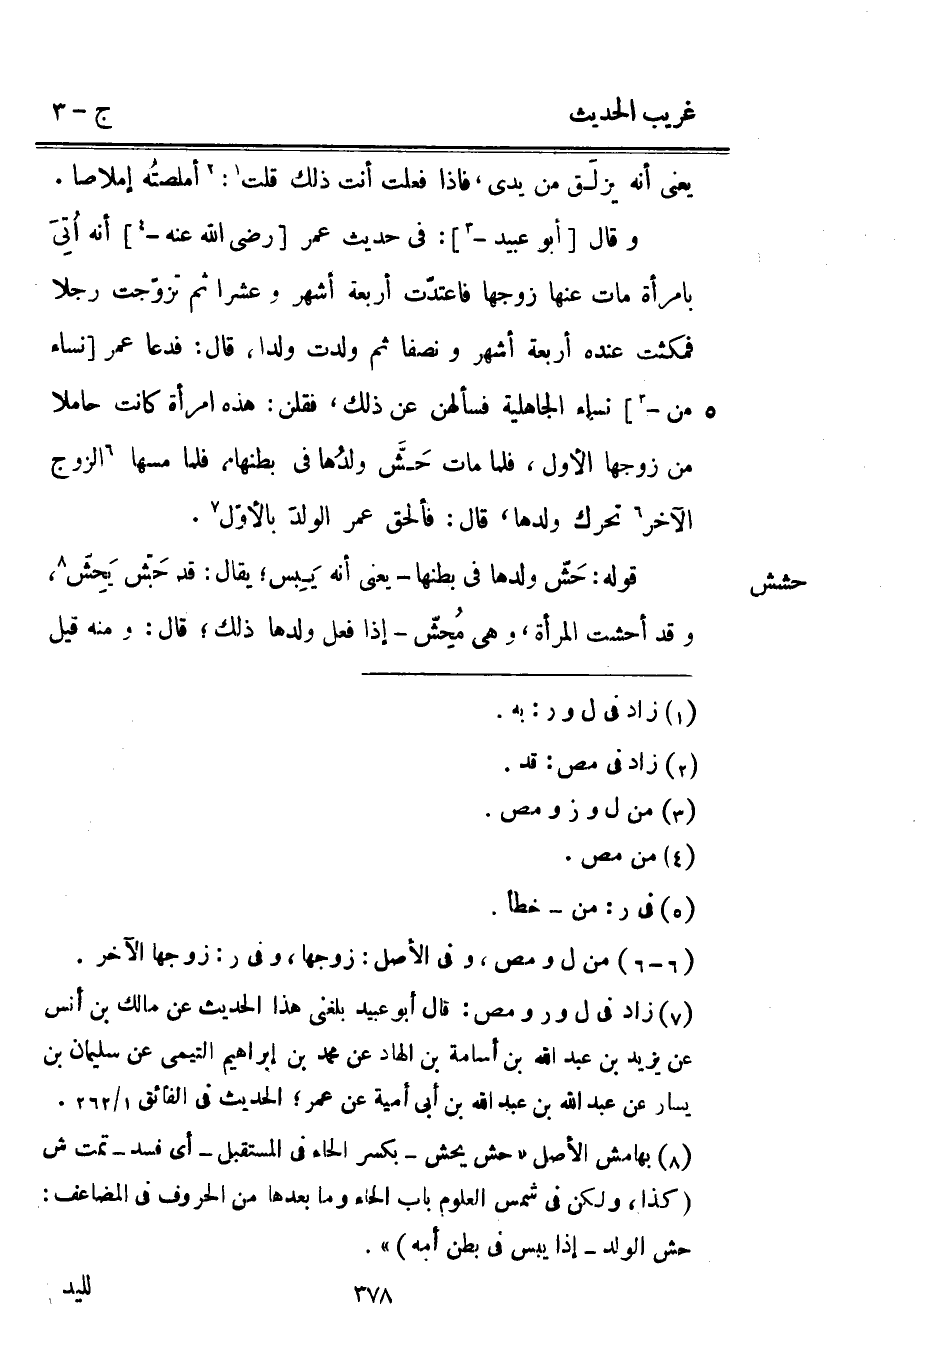 غريب الحديث ج - ٣
يعنى أنه يزلَق من يدى، فاذا فعلت أنت ذلك قلت١: ٢أملصتُه إملاصا.
و قال [أبو عبيد -٣]: فى حديث عمر [رضى الله عنه -٤] أنه أُتِيَ
بامرأة مات عنها زوجها فاعتدّت أربعة أشهر و عشرا ثم تزوّجت رجلا
فمكثت عنده أربعة أشهر و نصفا ثم ولدت ولدا، قال: فدعا عمر [نساء
٥ من -٣] نساء الجاهلية فسألهن عن ذلك، فقلن: هذه امرأة كانت حاملا
من زوجها الأول، فلما مات حَشَّ ولدُها فى بطنها، فلما مسها ٦الزوج
الآخر٦ تحرك ولدها، قال: فألحق عمر الولدَ بالأوّل٧.
حشش قوله: حَشّ ولدها فى بطنها - يعنى أنه يَبِس؛ يقال: قد حَشّ يَحِشّ٨،
و قد أحشت المرأة، و هى مُحِشّ - إذا فعل ولدها ذلك؛ قال: و منه قيل
(١) زاد فى ل و ر: به.
(٢) زاد فى مص: قد.
(٣) من ل و ز و مص.
(٤) من مص.
(٥) فى ر: من - خطأ.
(٦-٦) من ل و مص، و فى الأصل: زوجها، و فى ر: زوجها الآخر.
(٧) زاد فى ل و ر و مص: قال أبو عبيد بلغنى هذا الحديث عن مالك بن أنس
عن يزيد بن عبد الله بن أسامة بن الهاد عن محمد بن إبراهيم التيمى عن سليمان بن
يسار عن عبد الله بن عبد الله بن أبى أمية عن عمر؛ الحديث فى الفائق ٢٦٢/١.
(٨) بهامش الأصل «حش يحش - بكسر الحاء فى المستقبل - أى فسد - تمت ش
(كذا، ولكن فى شمس العلوم باب الحاء وما بعدها من الحروف فى المضاعف:
حش الولد - إذا يبس فى بطن أمه)».
٣٧٨ لليد